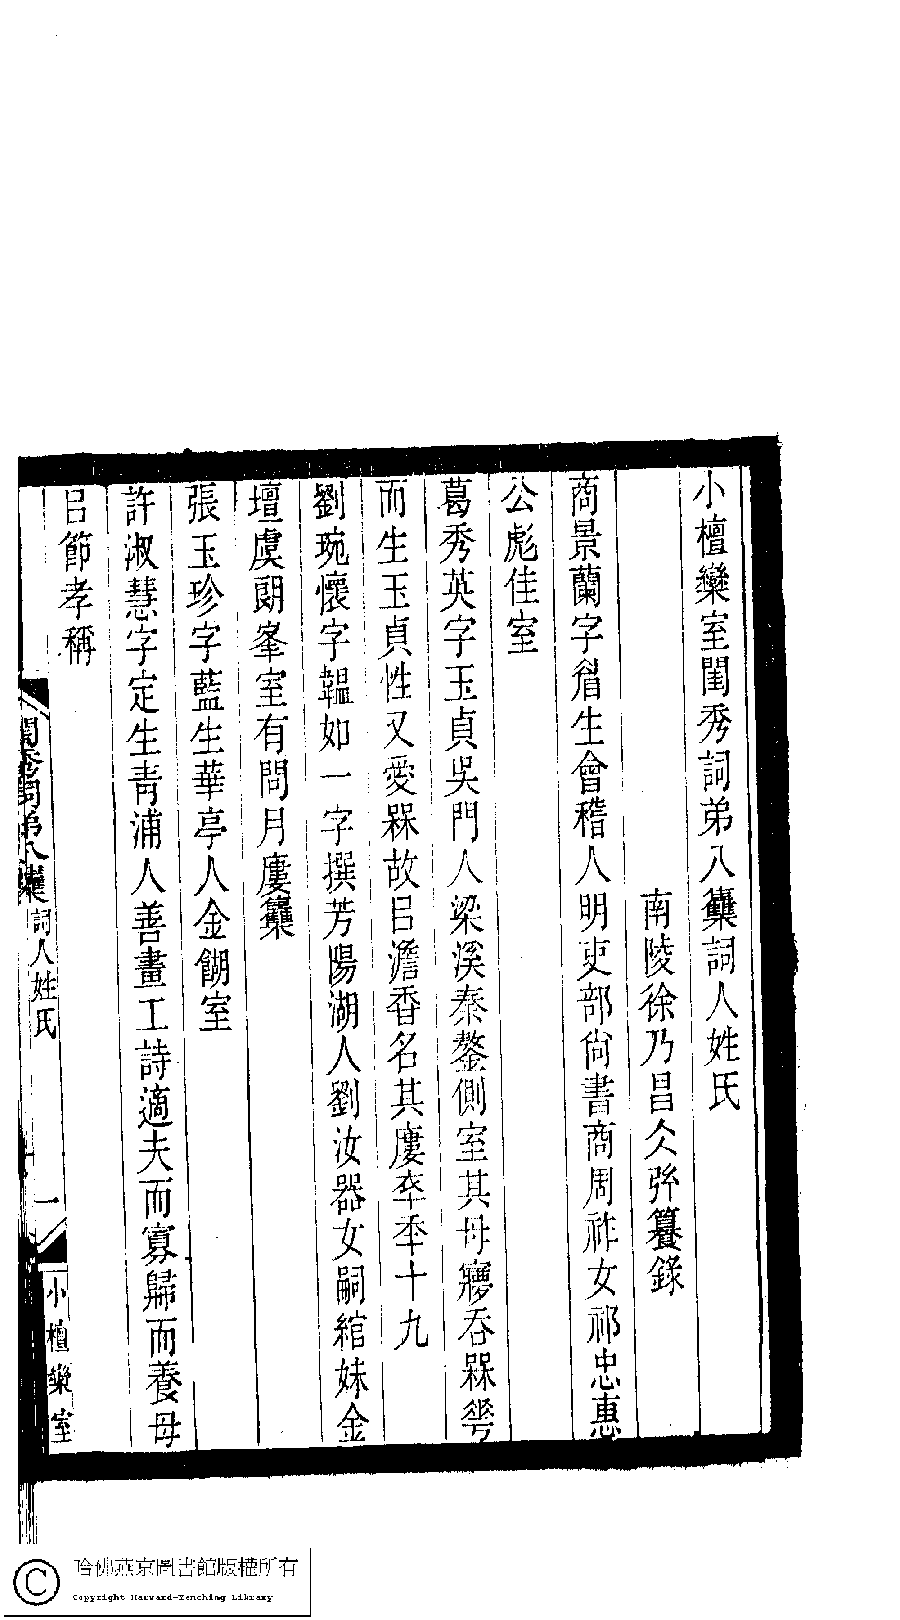 小檀欒室閨秀詞弟八集詞人姓氏
南陵徐乃昌仌弅篹錄
商景蘭字眉生會稽人明吏部尙書商周祚女祁忠惠
公彪佳室
葛秀英字玉貞吳門人梁溪秦鏊側室其母寢吞槑䔢
而生玉貞性又愛槑故㠯澹香名其廔卒秊十九
劉琬懷字韞如一字撰芳陽湖人劉汝器女嗣綰妹金
壇虞朗峯室有問月廔集
張玉珍字藍生華亭人金餬室
許淑慧字定生靑浦人善畫工詩適夫而寡歸而養母
㠯節孝稱
閨秀詞弟八集 詞人姓氏
一
小檀欒室
哈佛燕京圖書館版權所有
Copyright Harvard-Yenching Library